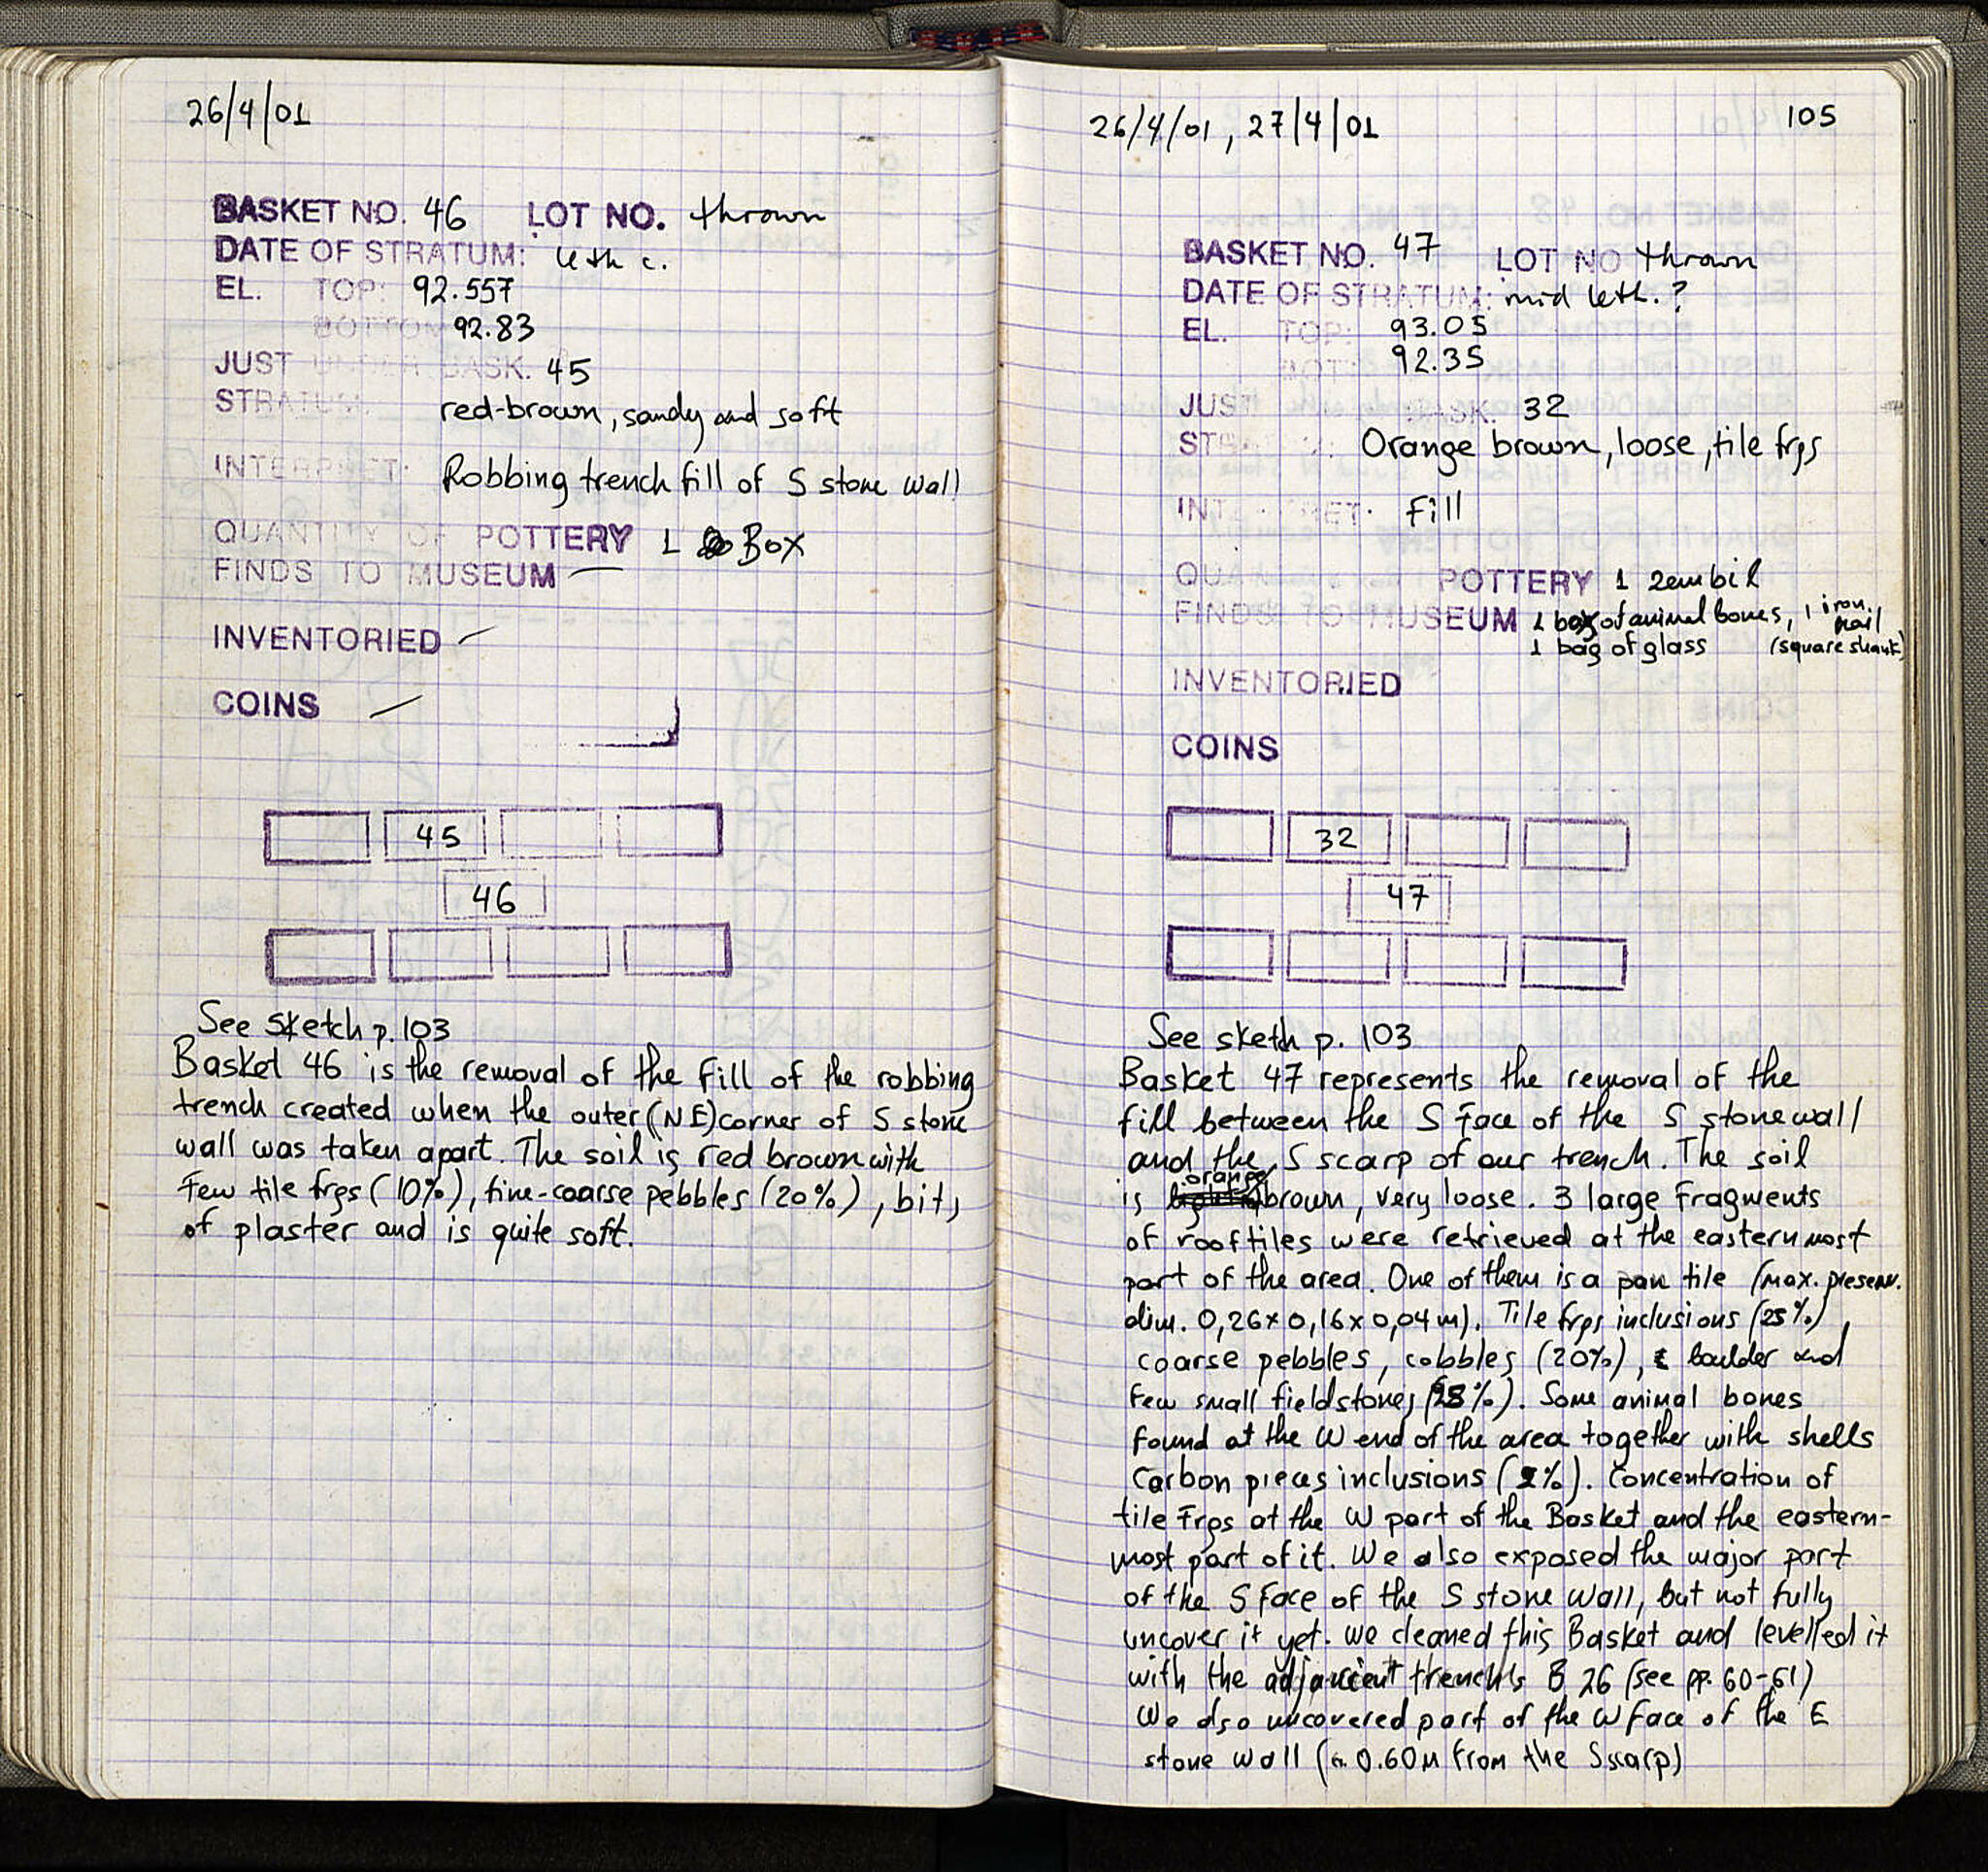 26/4/01
BASKET NO. 46 LOT NO. thrown
DATE OF STRATUM: 4th c.
EL. TOP: 92.557
BOTTOM 92.83
JUST UNDER BASK. 45
STRATUM: red-brown, sandy and soft
INTERPRET: Robbing trench fill of S stone wall
QUANTITY OF POTTERY 1 Box
FINDS TO MUSEUM —
INVENTORIED —
COINS —
45
46
See sketch p. 103
Basket 46 is the removal of the fill of the robbing
trench created when the outer (NE) corner of S stone
wall was taken apart. The soil is red brown with
few tile frgs (10%), fine-coarse pebbles (20%), bits
of plaster and is quite soft.
26/4/01, 27/4/01
105
BASKET NO. 47 LOT NO thrown
DATE OF STRATUM: mid 4th.?
EL. TOP: 93.05
BOT: 92.35
JUST BASK. 32
Orange brown, loose, tile frgs
Fill
POTTERY 1 zembil
FINDS TO MUSEUM 1 bag of animal bones, 1 iron nail
1 bag of glass (square shank)
INVENTORIED
COINS
32
47
See sketh p. 103
Basket 47 represents the removal of the
fill between the S face of the S stone wall
and the S scarp of our trench. The soil
is orange brown, very loose. 3 large fragments
of rooftiles were retrieved at the easternmost
part of the area. One of them is a pan tile (max. preserv.
dim. 0,26x0,16x0,04m). Tile frgs inclusions (25%),
coarse pebbles, cobbles (20%), boulder and
few small fieldstones. Some animal bones
found at the W end of the area together with shells
Carbon pieces inclusions (2%). Concentration of
tile Frgs at the W part of the Basket and the eastern-
most part of it. We also exposed the major part
of the S face of the S stone wall, but not fully
uncover it yet. We cleaned this Basket and levelled it
with the adjacient trench's B 26 (see pp. 60-61)
We also uncovered part of the W face of the E
stone wall (0.60m from the S scarp)